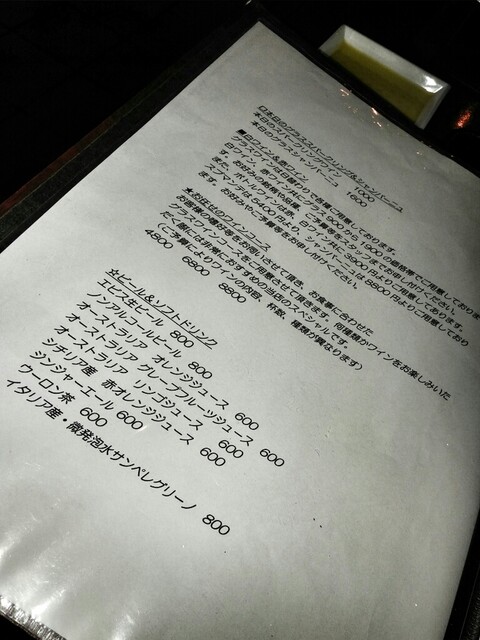 □本日のグラススパークリング&シャンパーニュ
本日のスパークリングワイン 1000
本日のグラスシャンパーニュ 1600
■白ワイン&赤ワイン
グラスワインは日替わりで各種ご用意しております。
白ワイン、赤ワイン共に、グラス900から1500の価格帯でご用意しております。
お好みの品種や品種、ご予算等をスタッフまでお申し付けください。
また、ボトルワインは赤、白ワイン共に3500円よりご用意しております。
スプマンテは5400円より、シャンパーニュは8800円よりご用意しております。お好みやご予算等をお申し付けください。
★お任せのワインコース
お客様の嗜好等をお伺いさせて頂き、お食事に合わせた
グラスワインコースをご用意させて頂きます。何種類かワインをお楽しみいた
だく際には非常におすすめの当店のスペシャルです。
(ご予算によりワインの内容、杯数、種類が異なります)
4800 6800 8800
☆ビール&ソフトドリンク
エビス生ビール 800
ノンアルコールビール 800
オーストラリア オレンジジュース 600
オーストラリア グレープフルーツジュース 600
オーストラリア リンゴジュース 600
シチリア産 赤オレンジジュース 600
ジンジャーエール 600
ウーロン茶 600
イタリア産・微発泡水サンペレグリーノ 800